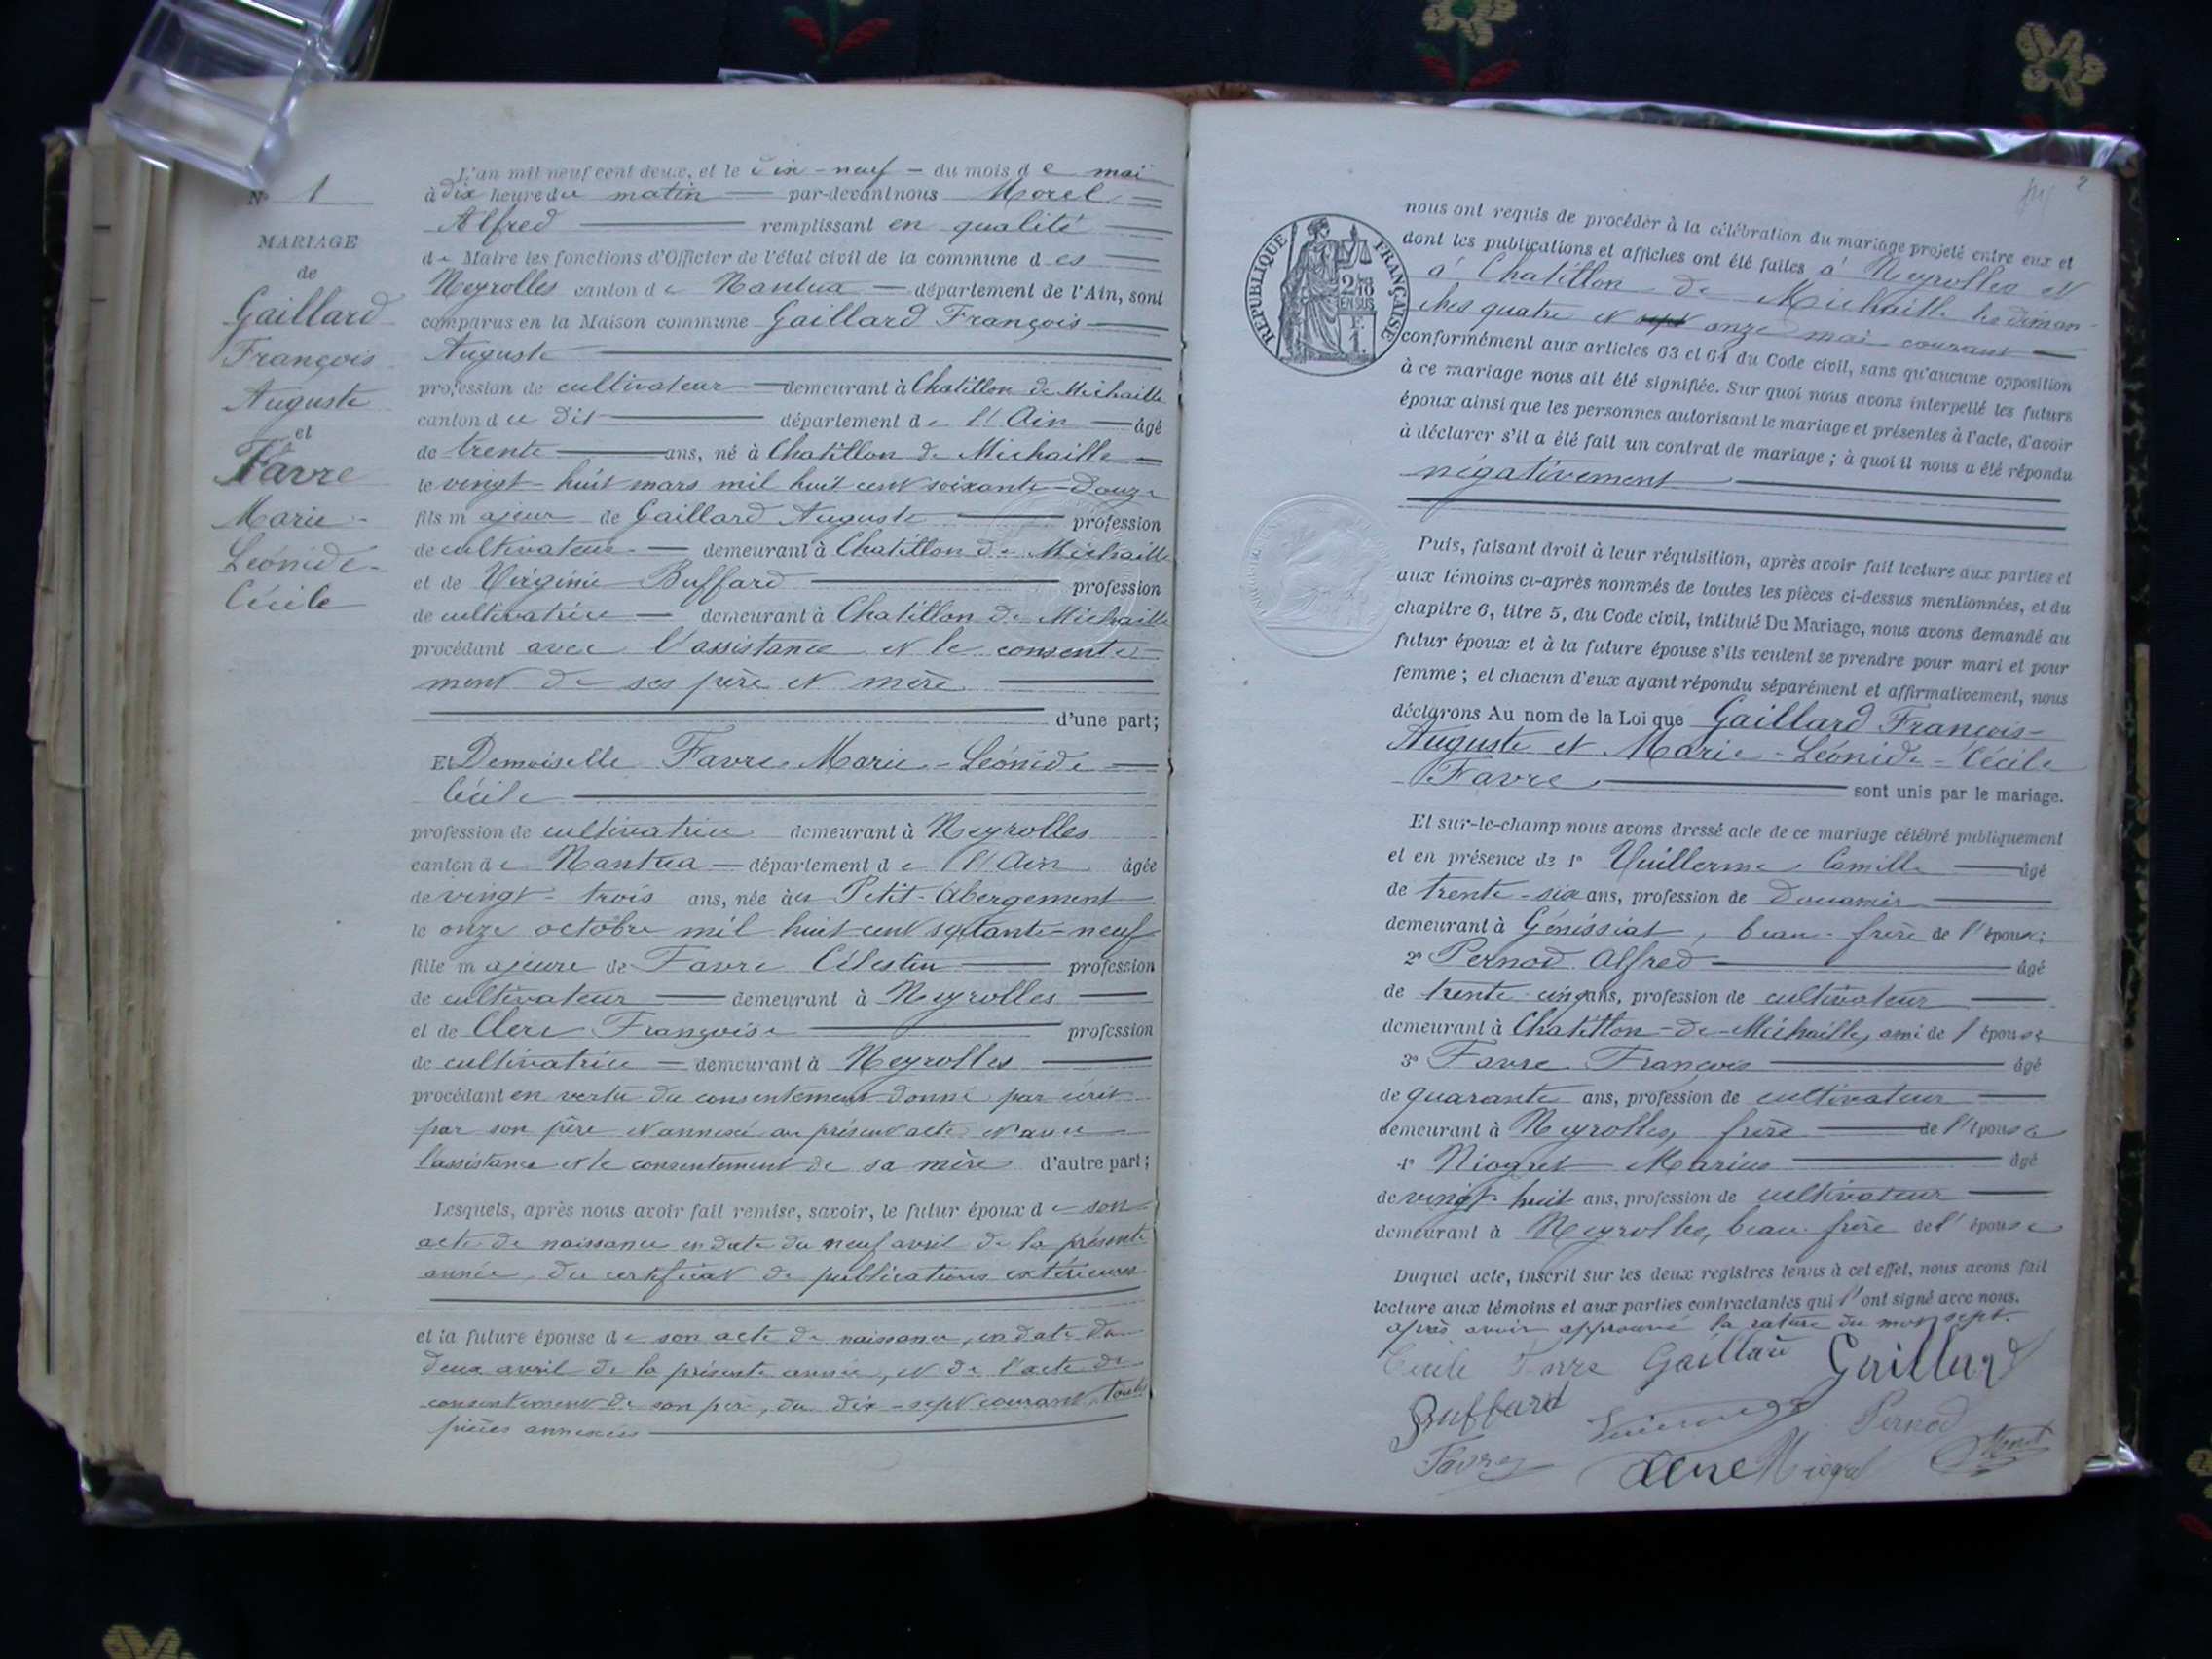 L'an mil neuf cent deux, et le dix-neuf du mois de mai
N° 1
à dix heure du matin par-devant nous Morel
Alfred remplissant en qualité
MARIAGE
de Maire les fonctions d'Officier de l'état civil de la commune des
de
Neyrolles canton de Nantua département de l'Ain, sont
Gaillard
comparus en la Maison commune Gaillard François
François
Auguste
Auguste
profession de cultivateur demeurant à Chatillon de Michaille
et
canton du dit département de l'Ain âgé
Favre
de trente ans, né à Chatillon de Michaille
Marie-
le vingt-huit mars mil huit cent soixante-douze
Léonide-
fils majeur de Gaillard Auguste profession
Cécile
de cultivateur demeurant à Chatillon de Michaille
et de Virginie Buffard profession
de cultivatrice demeurant à Chatillon de Michaille
procédant avec l'assistance et le consente-
ment de ses père et mère
d'une part;
Et Demoiselle Favre Marie-Léonide
Cécile
profession de cultivatrice demeurant à Neyrolles
canton de Nantua département de l'Ain âgée
de vingt-trois ans, née au Petit-Abergement
le onze octobre mil huit cent septante-neuf
fille majeure de Favre Célestin profession
de cultivateur demeurant à Neyrolles
et de Clerc Françoise profession
de cultivatrice demeurant à Neyrolles
procédant en vertu du consentement donné par écrit
par son père et annexé au présent acte et avec
l'assistance et le consentement de sa mère d'autre part;
Lesquels, après nous avoir fait remise, savoir, le futur époux de son
acte de naissance en date du neuf avril de la présente
année, du certificat de publications extérieures
et la future épouse de son acte de naissance, en date du
deux avril de la présente année, et de l'acte de
consentement de son père, du dix-sept courant, toutes
pièces annexées
2
RÉPUBLIQUE FRANÇAISE
2/10
EN SUS
1 F.
nous ont requis de procéder à la célébration du mariage projeté entre eux et
dont les publications et affiches ont été faites à Neyrolles et
à Chatillon de Michaille les diman-
ches quatre et sept onze mai courant
conformément aux articles 63 et 64 du Code civil, sans qu'aucune opposition
à ce mariage nous ait été signifiée. Sur quoi nous avons interpellé les futurs
époux ainsi que les personnes autorisant le mariage et présentes à l'acte, d'avoir
à déclarer s'il a été fait un contrat de mariage; à quoi il nous a été répondu
négativement
Puis, faisant droit à leur réquisition, après avoir fait lecture aux parties et
aux témoins ci-après nommés de toutes les pièces ci-dessus mentionnées, et du
chapitre 6, titre 5, du Code civil, intitulé Du Mariage, nous avons demandé au
futur époux et à la future épouse s'ils veulent se prendre pour mari et pour
femme; et chacun d'eux ayant répondu séparément et affirmativement, nous
déclarons Au nom de la Loi que Gaillard François-
Auguste et Marie-Léonide-Cécile
Favre
sont unis par le mariage.
Et sur-le-champ nous avons dressé acte de ce mariage célébré publiquement
et en présence de 1° Vuillerme Camille âgé
de trente-six ans, profession de Douanier
demeurant à Génissiat, beau-frère de l'époux;
2° Pernod Alfred âgé
de trente cinq ans, profession de cultivateur
demeurant à Chatillon-de-Michaille, ami de l'épouse
3° Favre François âgé
de quarante ans, profession de cultivateur
demeurant à Neyrolles, frère de l'épouse
4° Niogret Marius âgé
de vingt-huit ans, profession de cultivateur
demeurant à Neyrolles, beau-frère de l'épouse
Duquel acte, inscrit sur les deux registres tenus à cet effet, nous avons fait
lecture aux témoins et aux parties contractantes qui l'ont signé avec nous.
après avoir approuvé la rature du mot sept.
Cécile Favre Gaillard Gaillard
Buffard Pernod
Favre Clerc Niogret Morel